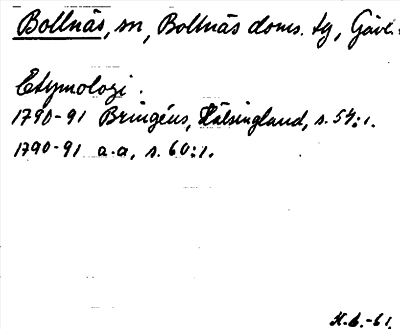 Bollnäs, sn, Bollnäs doms. tg, Gävl.
Etymologi.
1790-91 Bringéus, Hälsingland, s. 54:1.
1790-91 a.a, s. 60:1.
H.b.-61.